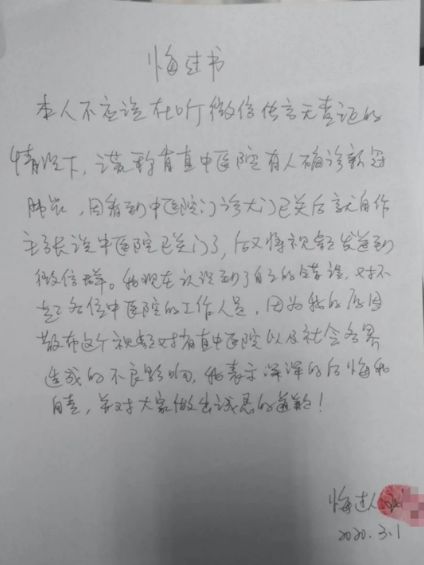 悔过书
本人不应该在听微信传言无查证的
情况下，谎称青县中医院有人确诊新冠
肺炎，因看到中医院门诊大门已关后就自作
主张说中医院已关门了，后又将视频发送到
微信群。我现在认识到了自己的错误，对不
起各位中医院的工作人员，因为我的原因
散布这个视频对青县中医院以及社会各界
造成的不良影响，我表示深深的后悔和
自责，并对大家做出诚恳的道歉！
悔过人
2020.3.1